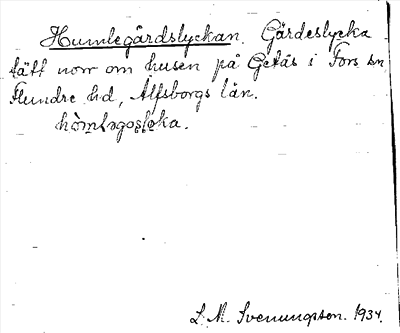 Humlegårdslyckan. Gärdeslycka
tätt norr om husen på Getås i Fors sn
Flundre hd, Älfsborgs län.
L. M. Svenungsson. 1934.